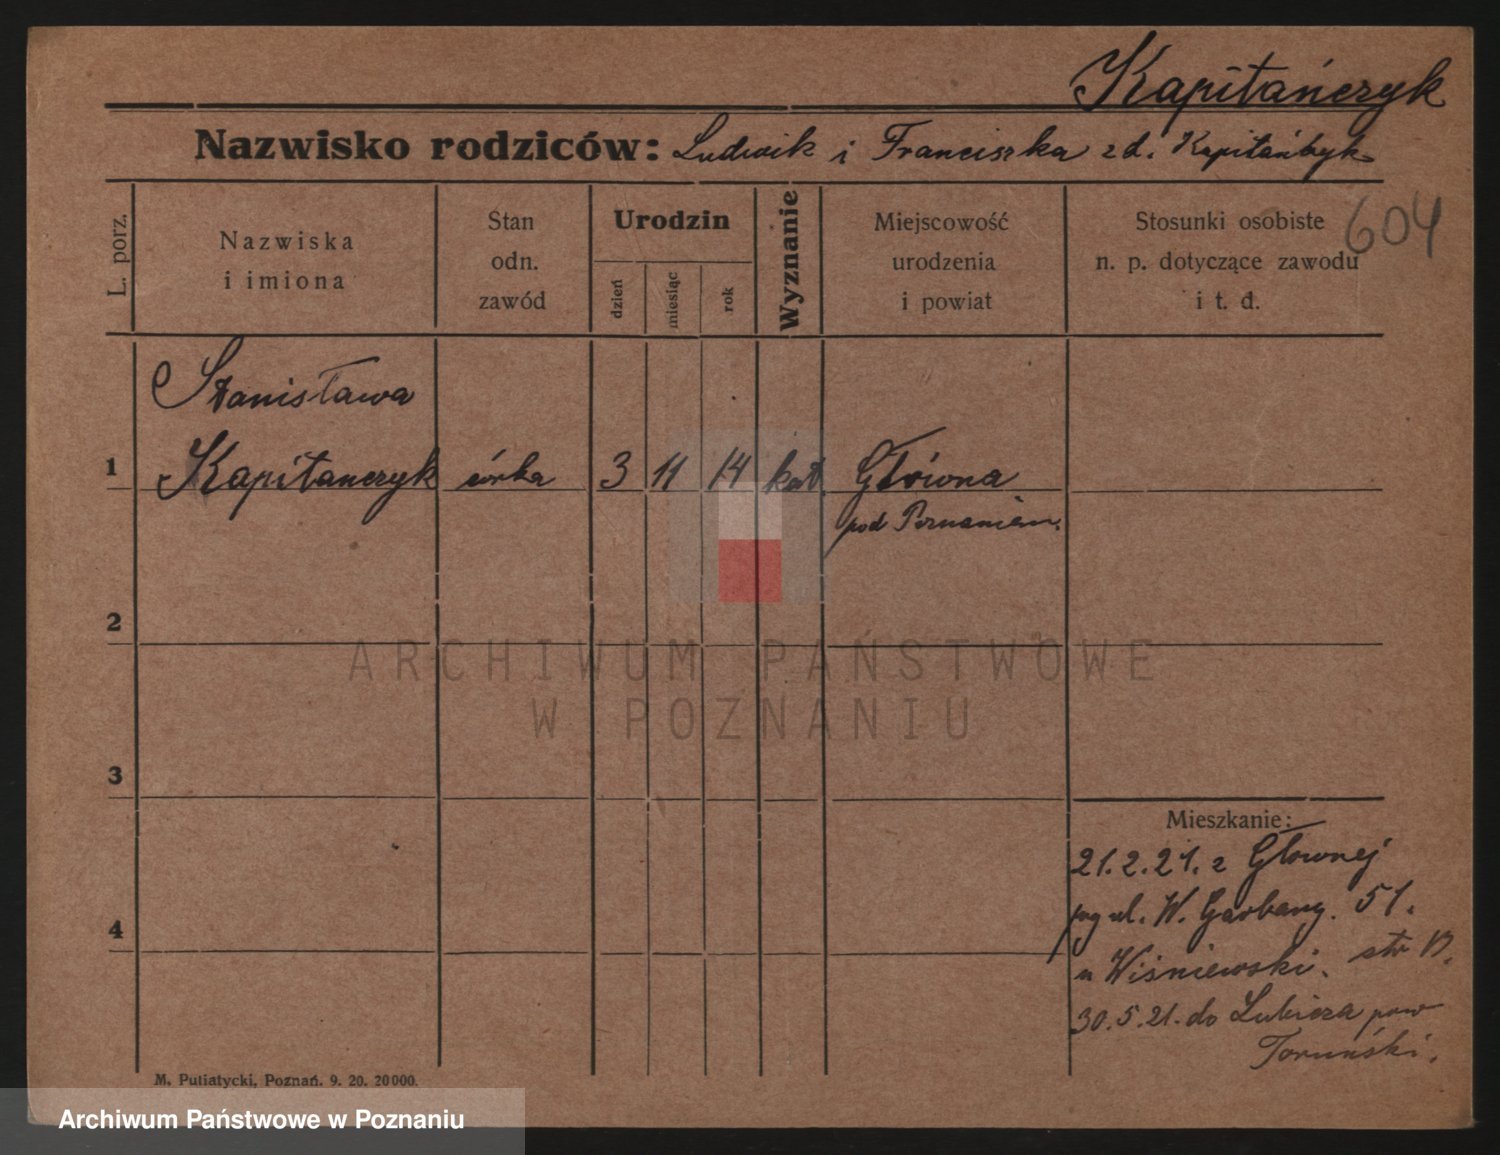 Kapitańczyk
Nazwisko rodziców: Ludwik i Franciszka zd. Kapitańczyk
604
L. porz.
Nazwiska
i imiona
Stan
odn.
zawód
Urodzin
dzień
miesiąc
rok
Wyznanie
Miejscowość
urodzenia
i powiat
Stosunki osobiste
n. p. dotyczące zawodu
i t. d.
Stanisława
1 Kapitanczyk córka 3 11 14 kat. Główna
pod Poznaniem.
2
3
4
Mieszkanie:
21.2.21. z Głownej
ul. W. Garbary. 51.
u Wiśniewski.
30.5.21. do Lubicza pow
Toruński.
M. Putiatycki, Poznań. 9. 20. 20000.
ARCHIWUM PAŃSTWOWE
W POZNANIU
Archiwum Państwowe w Poznaniu